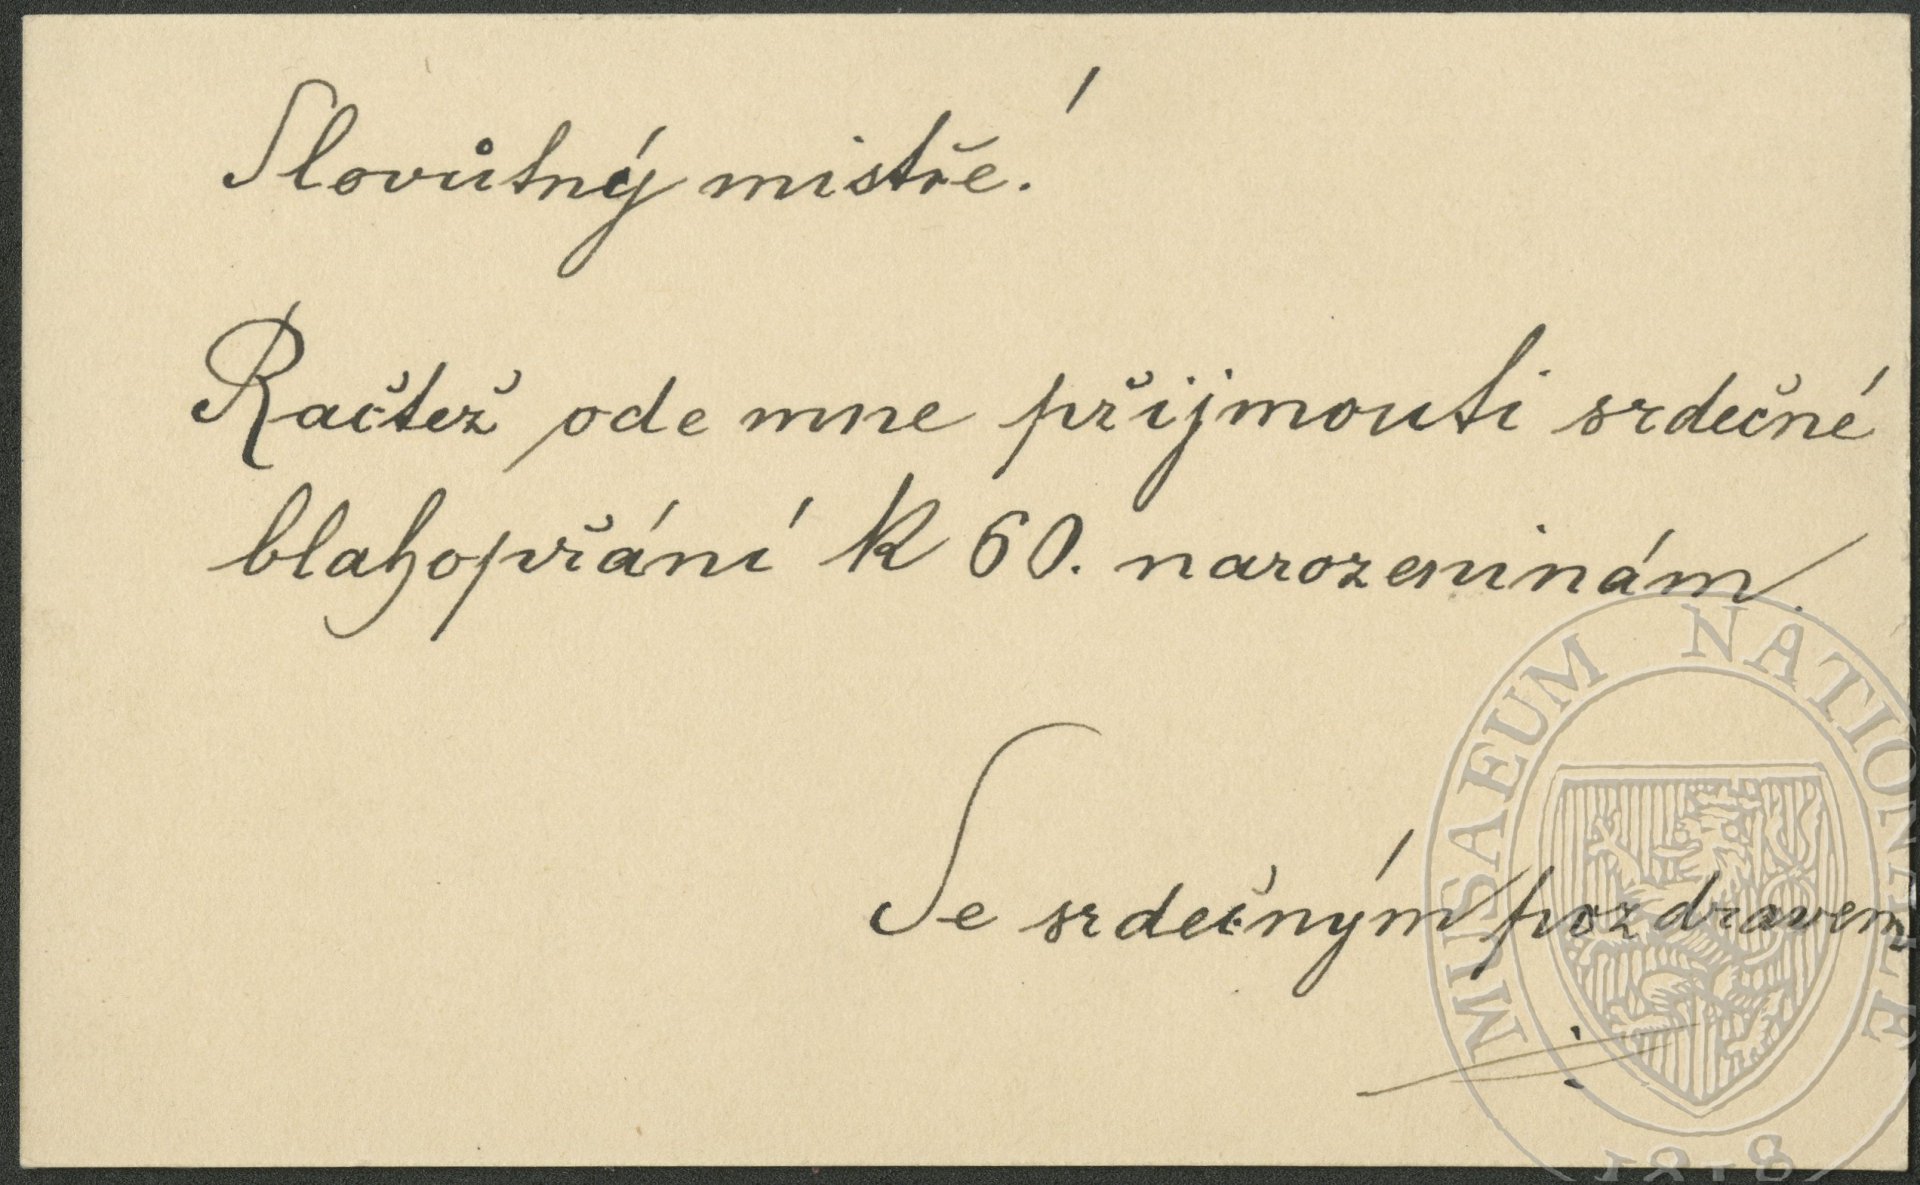 Slovůtný mistře!
Račtež ode mne přijmouti srdečné
blahopřání k 60. narozeninám.
Se srdečným pozdravem
MUSAEUM NATIONALE
1818